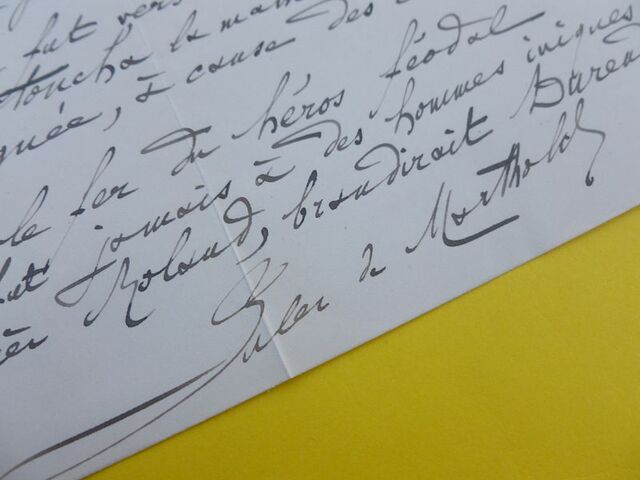 fut vers
toucha la main
gnée, à cause des
le fer du héros féodal
fut jamais à des hommes iniques
Roland, brandirait Duren
Jules de Marthold